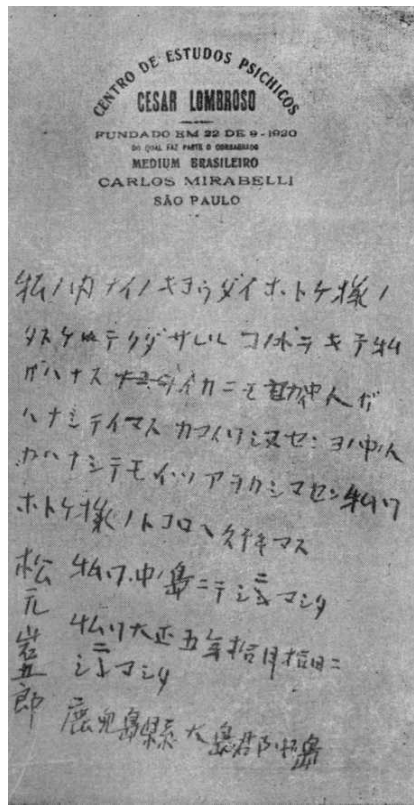 CENTRO DE ESTUDOS PSICHICOS
CESAR LOMBROSO
FUNDADO EM 22 DE 9-1920
DO QUAL FAZ PARTE O CONSAGRADO
MEDIUM BRASILEIRO
CARLOS MIRABELLI
SÃO PAULO
私ノ内ナイノキヨウダイホトケ様ノ
タスケ テクダサレ コノ キテ私
ガハナス イカニモ 人ガ
ハナシテイマス カ ヨノ中人
ガハナシテモイツ マセン私ワ
ホトケ様ノトコロヘ マス
私ワ中ノ島ニテシニマシタ
私ワ大正五年拾月拾日ニ
シニマシタ
鹿児島縣大島郡中島
松元岩五郎